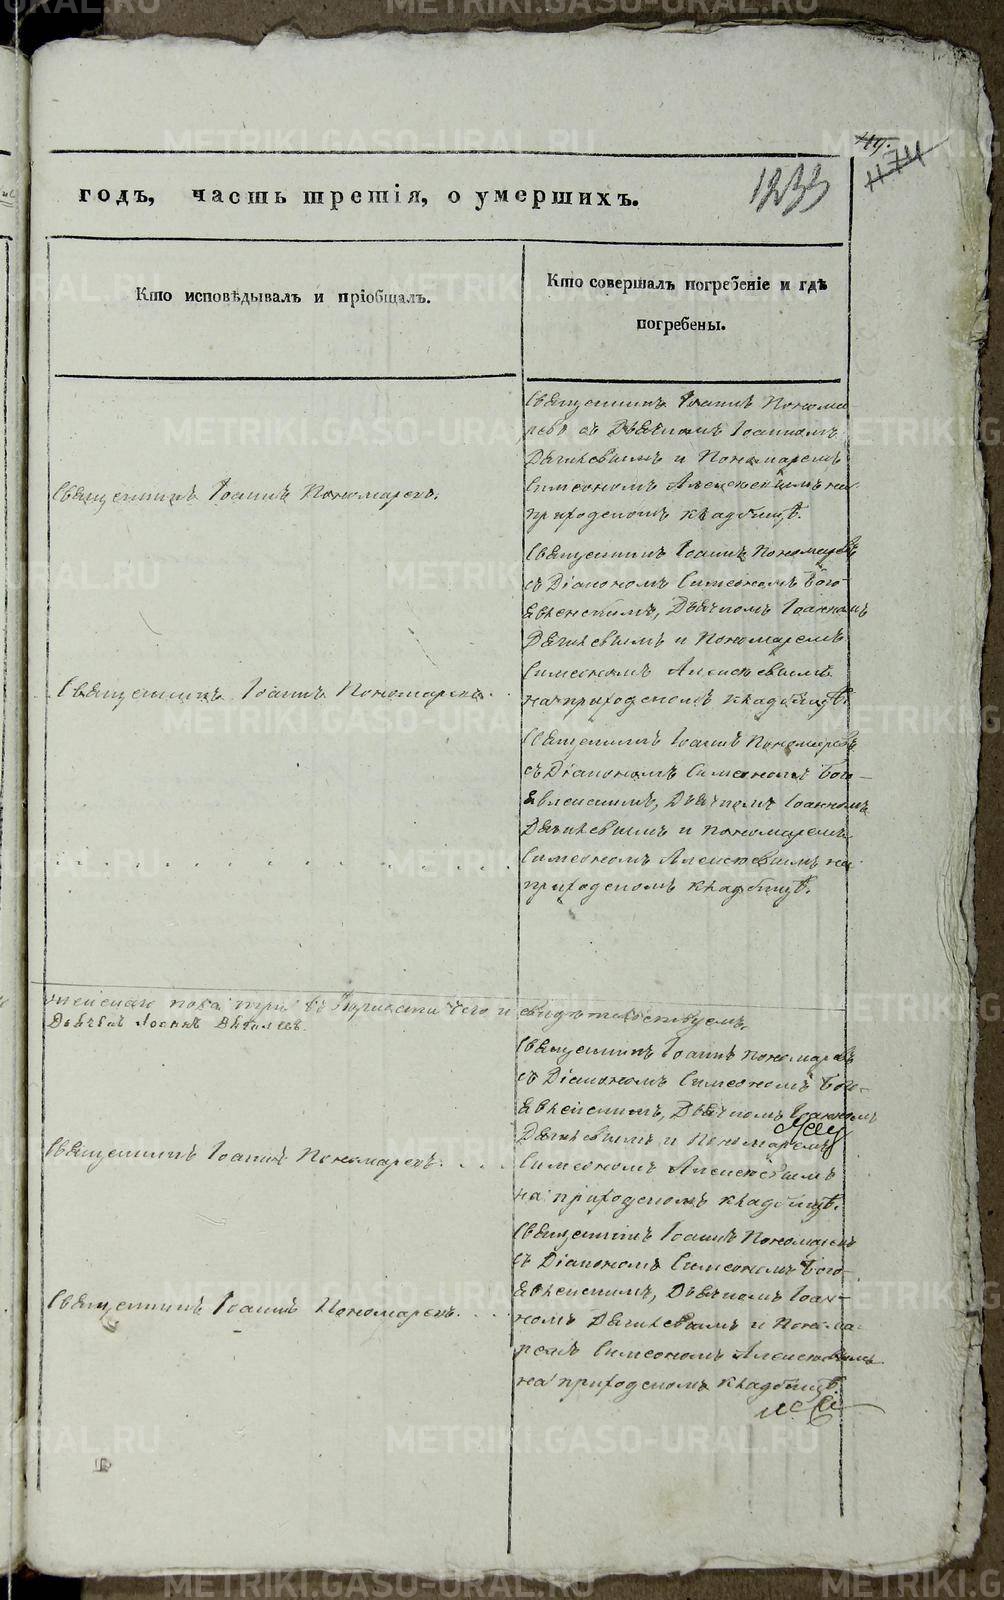 419.
474
1233
годъ, часть третія, о умершихъ.
Кто исповѣдывалъ и пріобщалъ.
Кто совершалъ погребеніе и гдѣ
погребены.
Священникъ Іоаннъ Пономаревъ.
Священникъ Іоаннъ Понома
ревъ съ Дьячкомъ Іоанномъ
и Пономаремъ
Симеономъ Алексеевымъ на
приходскомъ кладбищѣ.
Священникъ Іоаннъ Пономаревъ.
Священникъ Іоаннъ Пономаревъ
съ Діакономъ Симеономъ Бого-
явленскимъ, Дьячкомъ Іоанномъ
и Пономаремъ
Симеономъ Алексеевымъ
на приходскомъ кладбищѣ.
Священникъ Іоаннъ Пономаревъ
съ Діакономъ Симеономъ Бого-
явленскимъ, Дьячкомъ Іоанномъ
и пономаремъ
Симеономъ Алексеевымъ на
приходскомъ кладбищѣ.
свидѣтельствуемъ.
Дьячекъ
Священникъ Іоаннъ Пономаревъ.
Священникъ Іоаннъ Пономаревъ
съ Діакономъ Симеономъ Бого-
явленскимъ, Дьячкомъ Іоанномъ
и Пономаремъ
Симеономъ Алексеевымъ
на приходскомъ кладбищѣ.
Священникъ Іоаннъ Пономаревъ.
Священникъ Іоаннъ Пономаревъ
съ Діакономъ Симеономъ Бого-
явленскимъ, Дьячкомъ Іоан-
номъ и Понома-
ремъ Симеономъ Алексеевымъ
на приходскомъ кладбищѣ.
METRIKI.GASO-URAL.RU